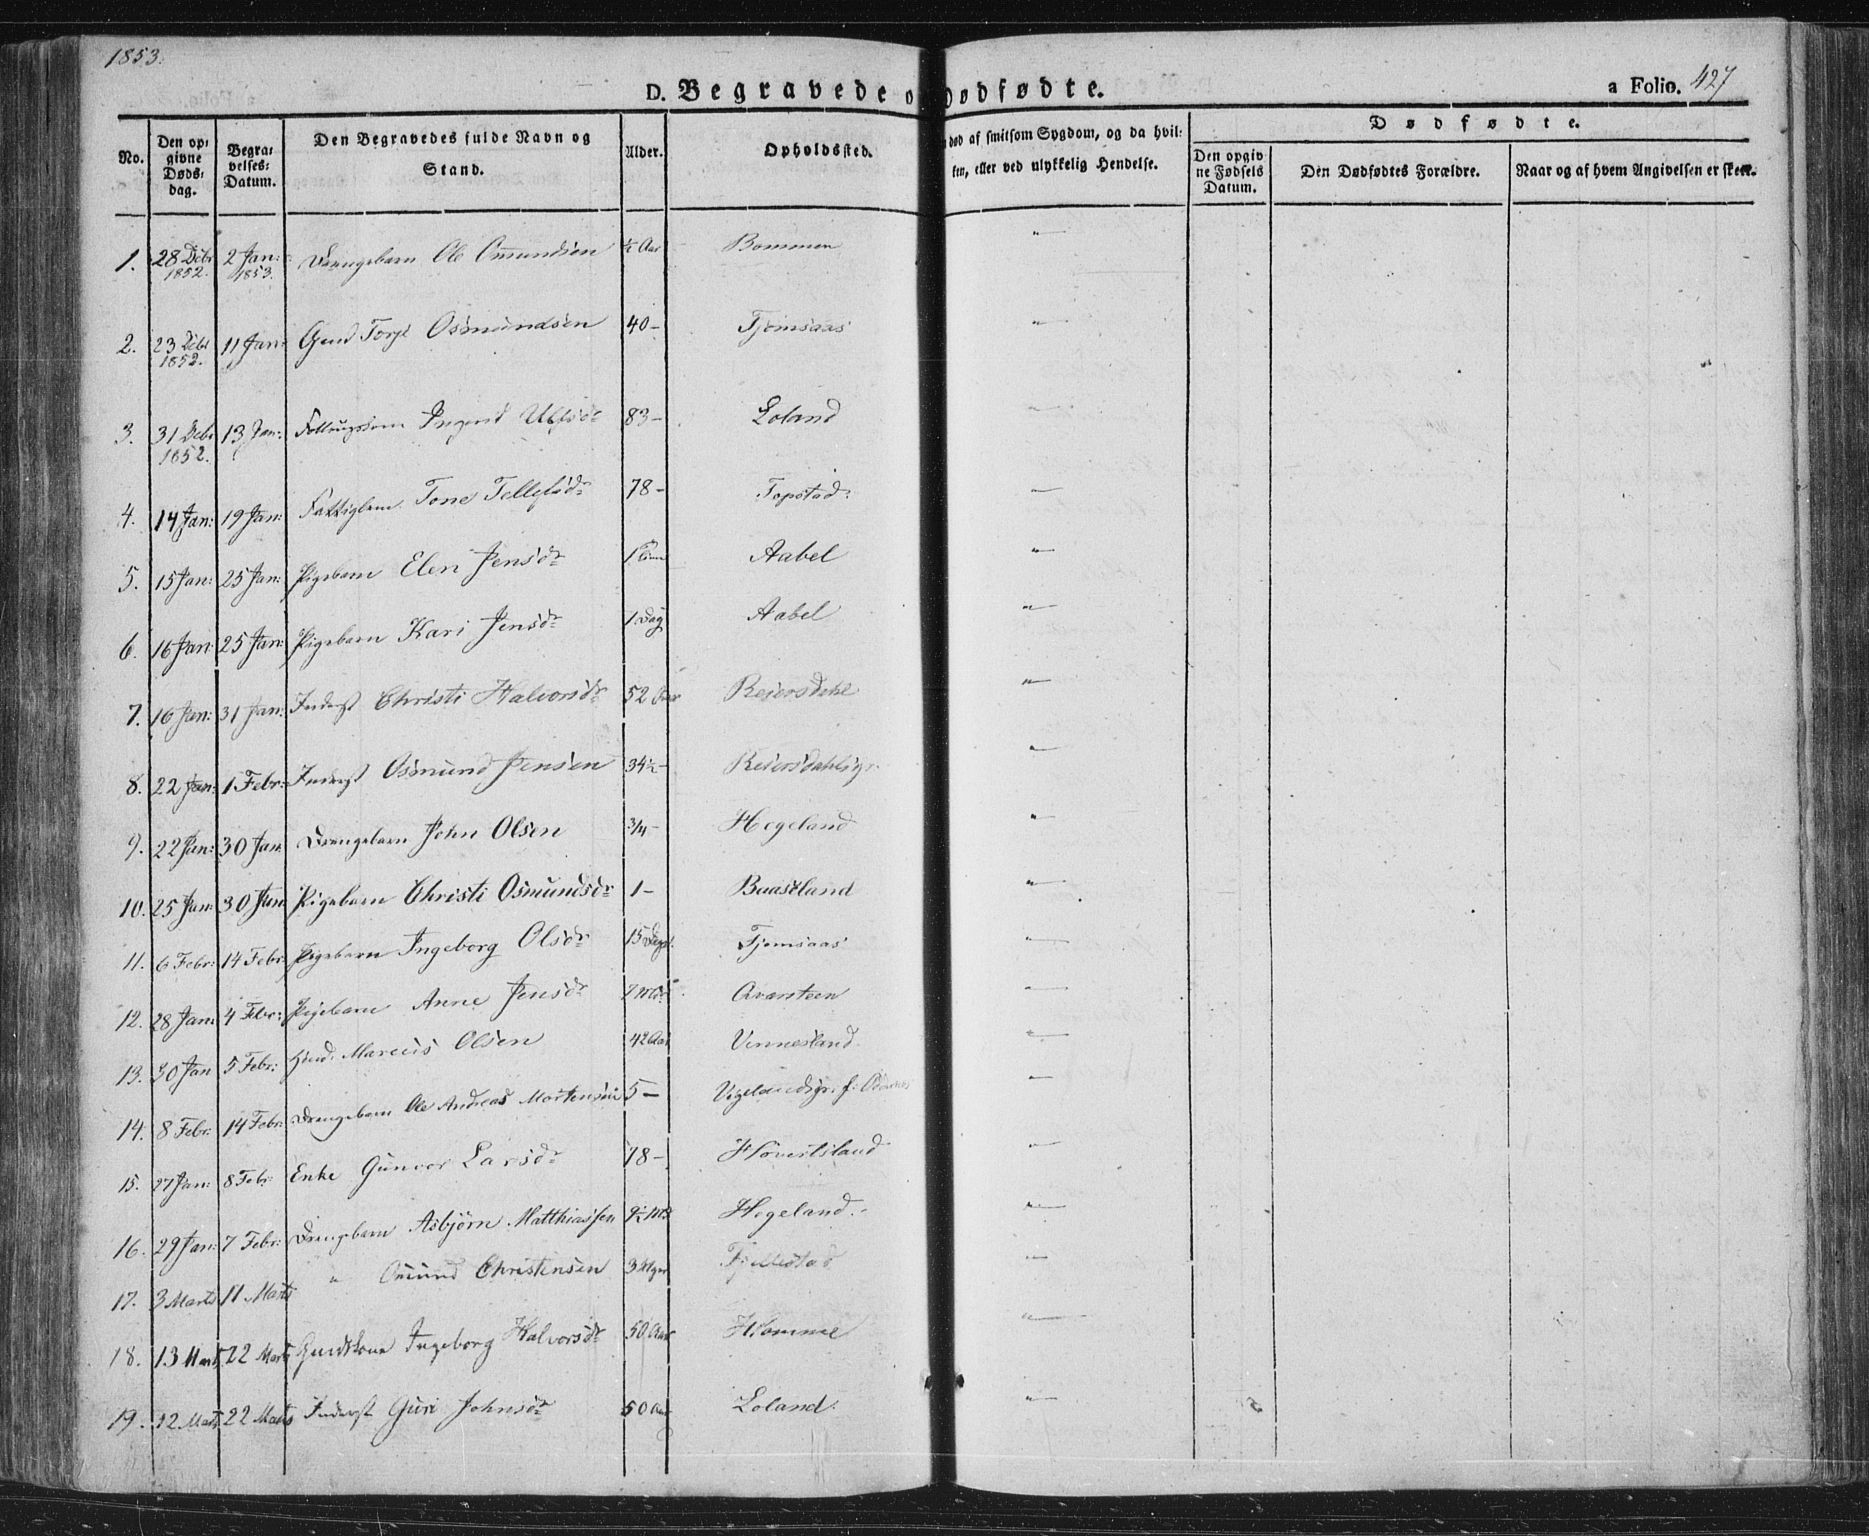 1853.
D. Begravede o Dødfødte.
a Folio. 427
No.
Den op-
givne
Døds-
dag.
Begra-
velses-
Datum.
Den Begravedes fulde Navn og
Stand.
Alder.
Opholdssted.
død af smitsom Sygdom, og da hvil-
ken, eller ved ulykkelig Hendelse.
Dødfødte.
Den opgiv
ne Fødsels
Datum.
Den Dødfødtes Forældre.
Naar og af hvem Angivelsen er skeet.
1. 28 Debr 1852. 2 Jan: 1853. Drengebarn Ole Omundsen ½ Aar Bommen "
2. 23 Debr 1852. 11 Jan: Gmd Torje Osmundsen 40 - Tjomsaas "
3. 31 Debr 1852. 13 Jan: Ingerd 83 - Loland "
4. 14 Jan: 19 Jan: Fattiglem Tone Tellefsdr 78 - Topstad "
5. 15 Jan: 25 Jan: Pigebarn Elen Jensdr 1 Aabel "
6. 16 Jan: 25 Jan: Pigebarn Kari Jensdr 1 Dag Aabel "
7. 16 Jan: 31 Jan: Inderst Christi Halvorsdr 52 Aar Reiersdahl "
8. 22 Jan: 1 Febr: Inderst Osmund Jensen 34½ - Reiersdahlsgr. "
9. 22 Jan: 30 Jan: Drengebarn John Olsen 3/4 - Hegeland "
10. 25 Jan: 30 Jan: Pigebarn Christi Osmundsdr 1 - Buastland "
11. 6 Febr: 14 Febr: Pigebarn Ingeborg Olsdr 15 Tjomsaas "
12. 28 Jan: 4 Febr: Pigebarn Anne Jensdr Qvarsteen "
13. 30 Jan 5 Febr: Marcus Olsen 42 Aar Vennesland "
14. 8 Febr: 14 Febr: Drengebarn Ole Andreas Mortensen 5 - "
15. 27 Jan: 8 Febr: Enke Gunvor Larsdr 78 - Hövertsland "
16. 29 Jan: 7 Febr: Drengebarn Asbjörn Matthiassen 9½ Md Hegeland "
17. 3 Marts 11 Marts " Omund Christensen 3 Uger Fjellestad "
18. 13 Marts 22 Marts Gmdskone Ingeborg Halvorsdr 50 Aar Homme "
19. 12 Marts 22 Marts Inderst Guri Johnsdr 50 Aar Loland "